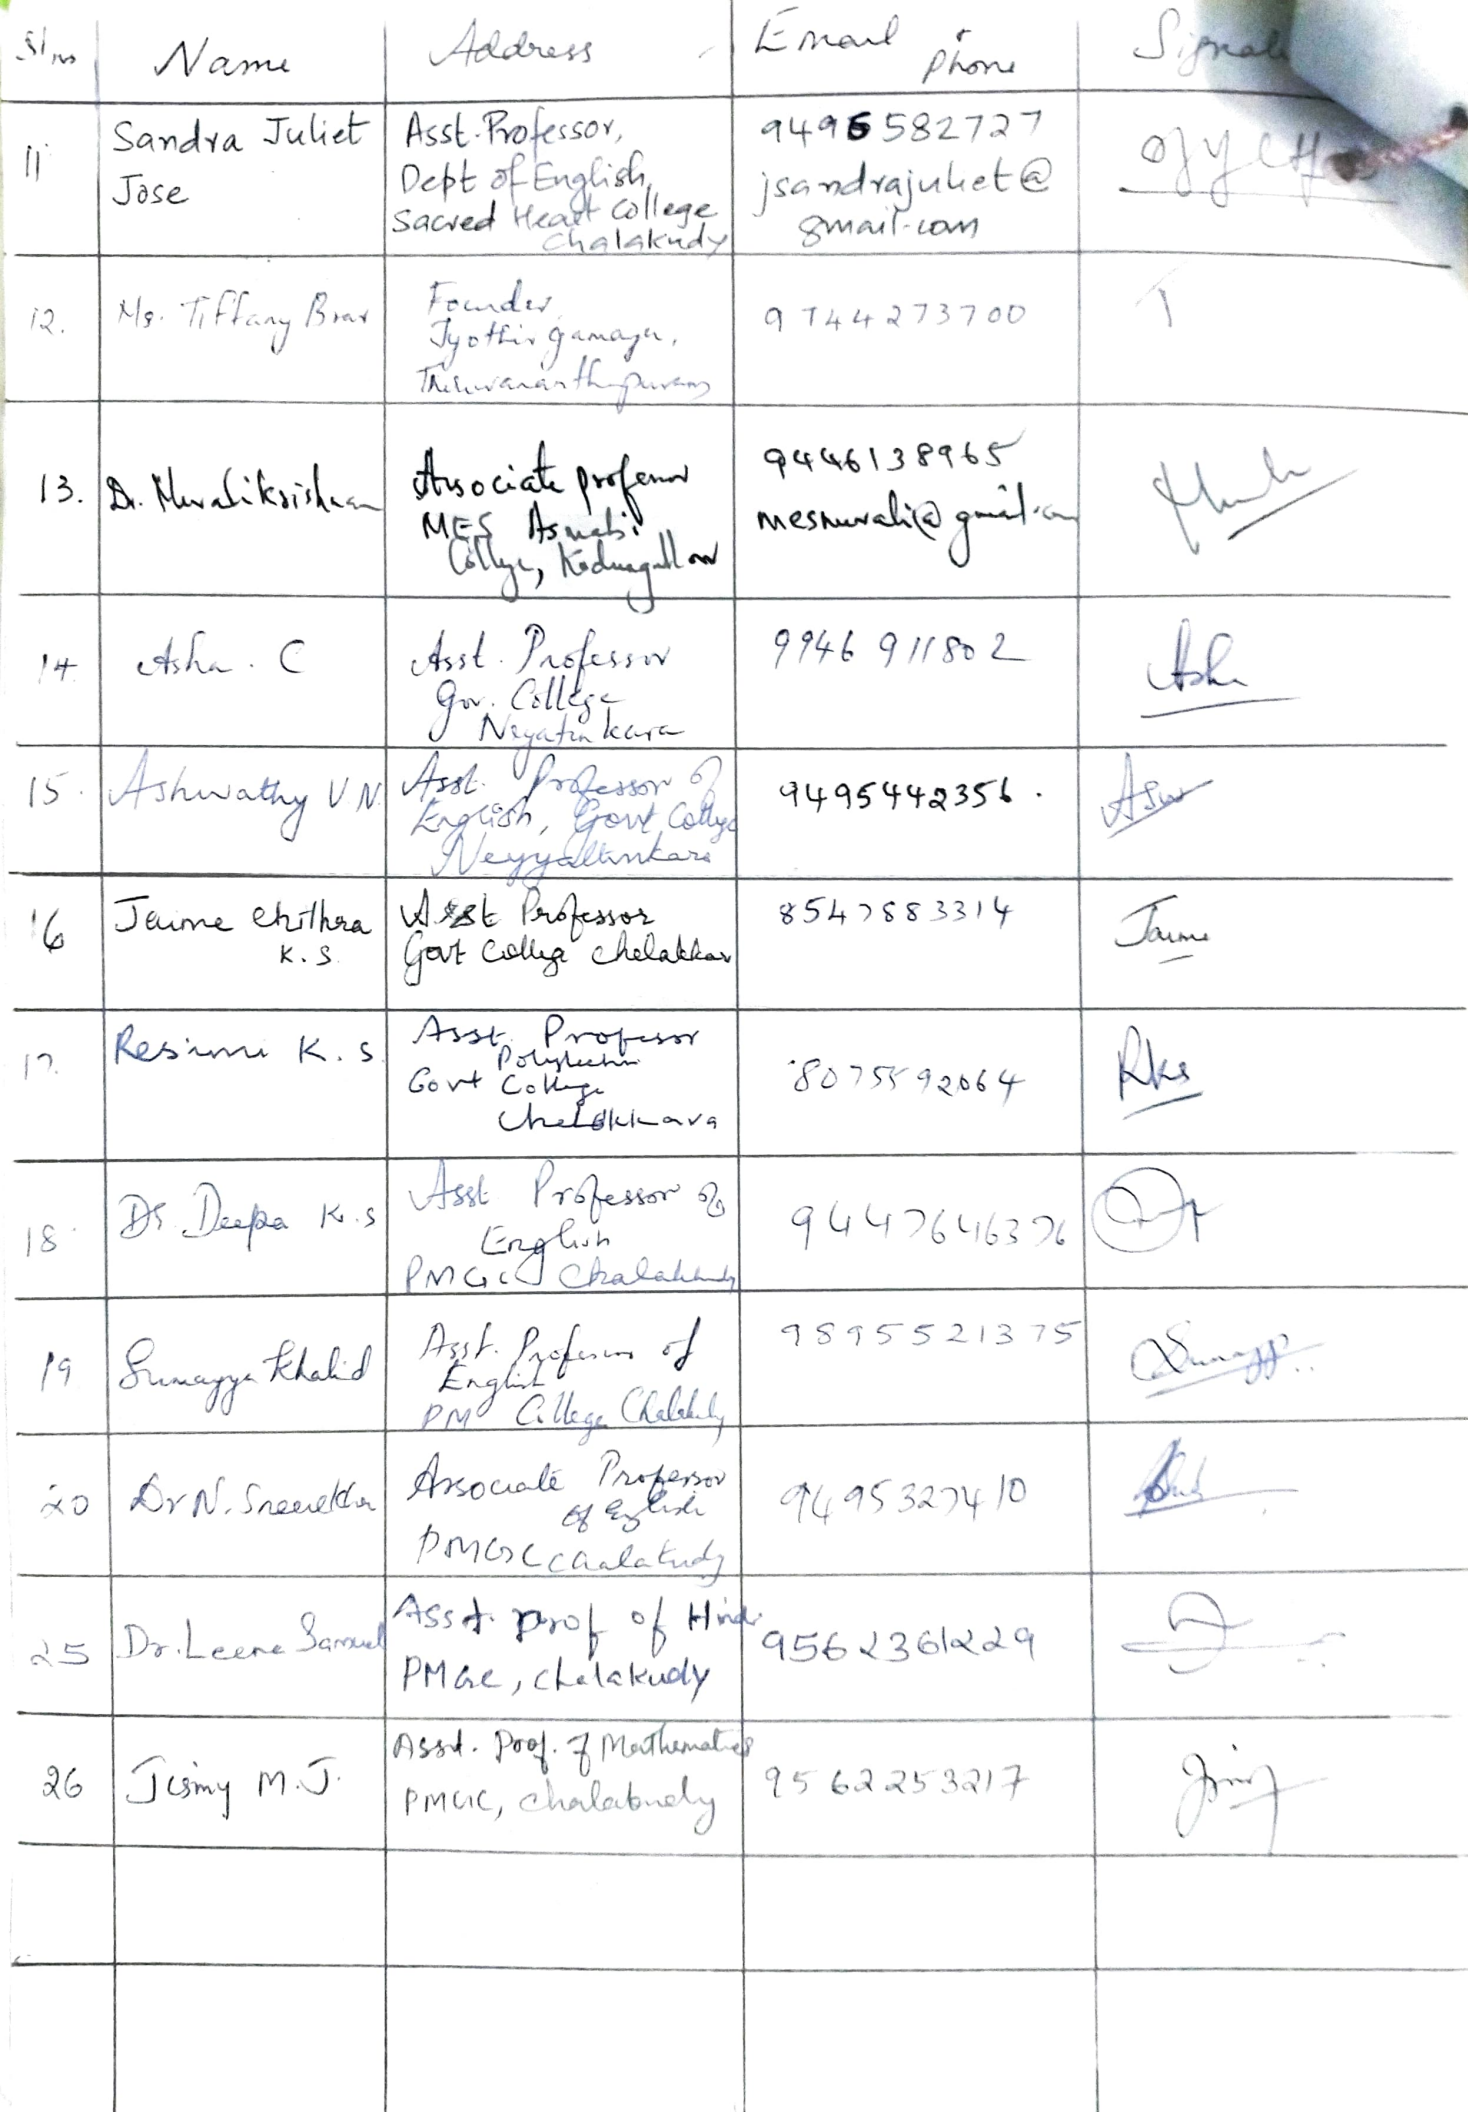 Sl no Name Address Email & Phone
11 Sandra Juliet Jose
Asst. Professor,
Dept of English,
Sacred Heart College
Chalakudy
9496582727
jsandrajuliet@
gmail.com
12. Ms. Tiffany Brar
Founder,
Jyothirgamaya,
Thiruvananthapuram
9744273700
13. Dr. Muralikrishnan
Associate professor
MES Asmabi
College, Kodungallur
9446138965
mesmurali@gmail.com
14 Asha. C
Asst. Professor
Gov. College
Neyatinkara
9946 911802
Asha
15. Ashwathy V N
Asst. Professor of
English, Govt College
Neyyattinkara
9495442356.
Asw
16 Jaime Chithra
K.S.
Asst Professor
Govt College Chelakkar
8547883314
Jaime
17. Resimi K.S
Asst. Professor
Polytechnic
Govt College
Chelakkara
8075592064
Rks
18. Dr. Deepa K.S
Asst Professor of
English
PMGC Chalakudy
9447646376
19 Sumayya Khalid
Asst. Professor of
English
PM College Chalakudy
9895521375
Sumayy
20 Dr N. Sreerekha
Associate Professor
of English
PMGC Chalakudy
9495327410
25 Dr. Leena Samuel
Asst. prof of Hindi
PMGC, Chalakudy
9562361229
26 Jismy M.J.
Asst. Prof. of Mathematics
PMGC, Chalakudy
9562253217